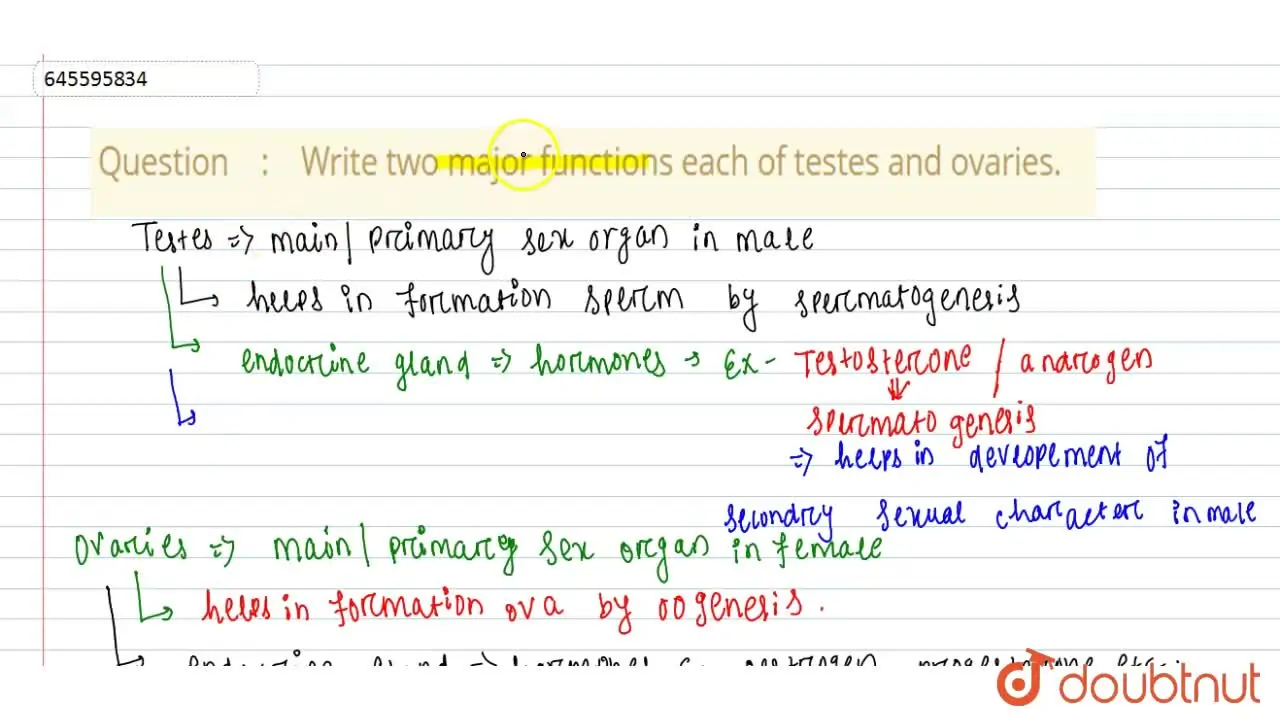 645595834
Question : Write two major functions each of testes and ovaries.
Testes => main/primary sex organ in male
helps in formation sperm by spermatogenesis
endocrine gland => hormones → Ex- Testosterone / anarogen
spermatogenesis
=> helps in development of
secondry sexual character in male
ovaries => main/primarey sex organ in female
helps in formation ova by oogenesis.
endocrine gland => hormones
doubtnut